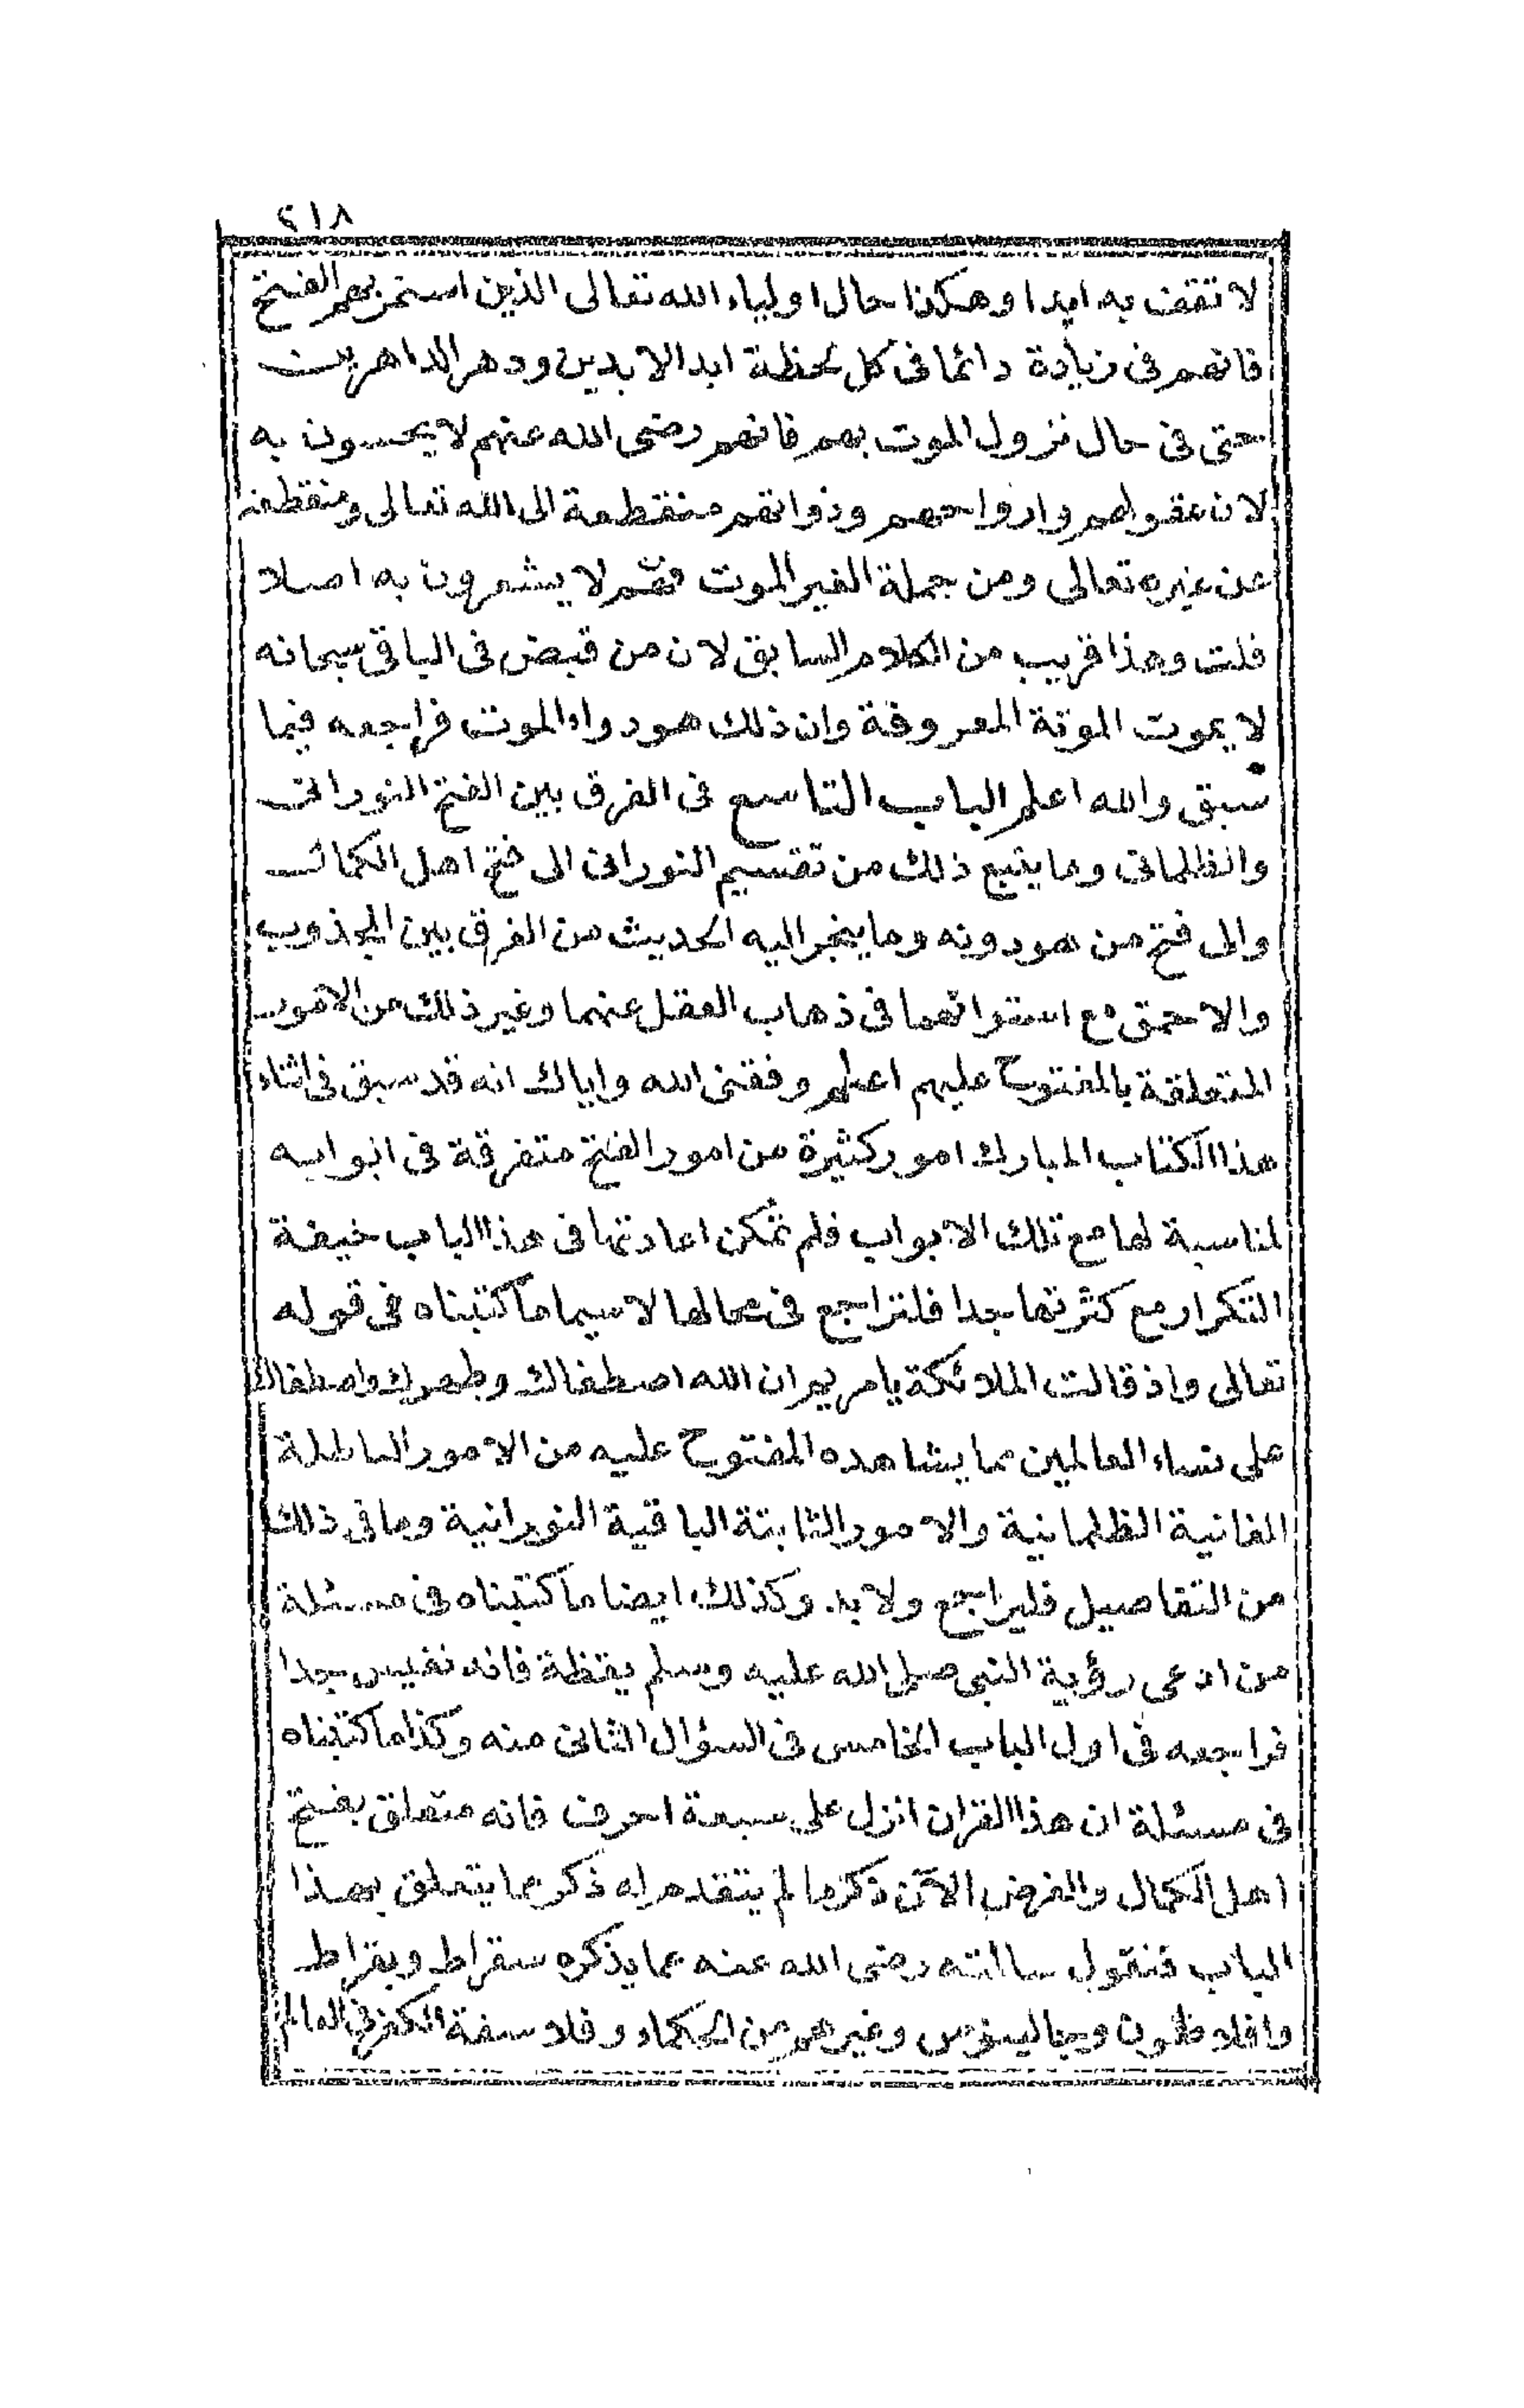 ٤١٨
لا تقف به ابدا وهكذا حال اولياء الله تعالى الذين استمر بهم الفتح
فانهم فى زيادة دائما فى كل لحظة ابد الابدين ودهر الداهرين
حتى فى حال نزول الموت بهم فانهم رضى الله عنهم لا يحسون به
لان عقولهم وارواحهم وذواتهم منقطعة الى الله تعالى ومنقطعة
عن غيره تعالى ومن جملة الغير الموت فهم لا يشعرون به اصلا
قلت وهذا قريب من الكلام السابق لان من قبض فى الباقى سبحانه
لا يموت الموتة المعروفة وان ذلك هو دواء الموت فراجعه فيما
سبق والله اعلم الباب التاسع فى الفرق بين الفتح النورانى
والظلمانى وما يتبع ذلك من تقسيم النورانى الى فتح اهل الكمال
والى فتح من هو دونه وما ينجر اليه الحديث من الفرق بين المجذوب
والاحمق مع استوائهما فى ذهاب العقل عنهما وغير ذلك من الامور
المتعلقة بالمفتوح عليهم اعلم وفقنى الله واياك انه قد سبق فى اثناء
هذا الكتاب المبارك امور كثيرة من امور الفتح متفرقة فى ابوابه
لمناسبة لها مع تلك الابواب فلم تمكن اعادتها فى هذا الباب خيفة
التكرار مع كثرتها جدا فلتراجع فى محالها لا سيما ما كتبناه فى قوله
تعالى واذ قالت الملائكة يا مريم ان الله اصطفاك وطهرك واصطفاك
على نساء العالمين مما يشاهده المفتوح عليه من الامور الباطلة
الفانية الظلمانية والامور الثابتة الباقية النورانية وما فى ذلك
من التفاصيل فليراجع ولا بد وكذلك ايضا ما كتبناه فى مسئلة
من ادعى رؤية النبى صلى الله عليه وسلم يقظة فانه نفيس جدا
فراجعه فى اول الباب الخامس فى السؤال الثانى منه وكذا ما كتبناه
فى مسئلة ان هذا القران انزل على سبعة احرف فانه متعلق بفتح
اهل الكمال والغرض الآن ذكر ما لم يتقدم له ذكر مما يتعلق بهذا
الباب فنقول سالته رضى الله عنه عما يذكره سقراط وبقراط
وافلاطون وجالينوس وغيرهم من الحكماء وفلاسفة الكفر فى العالم